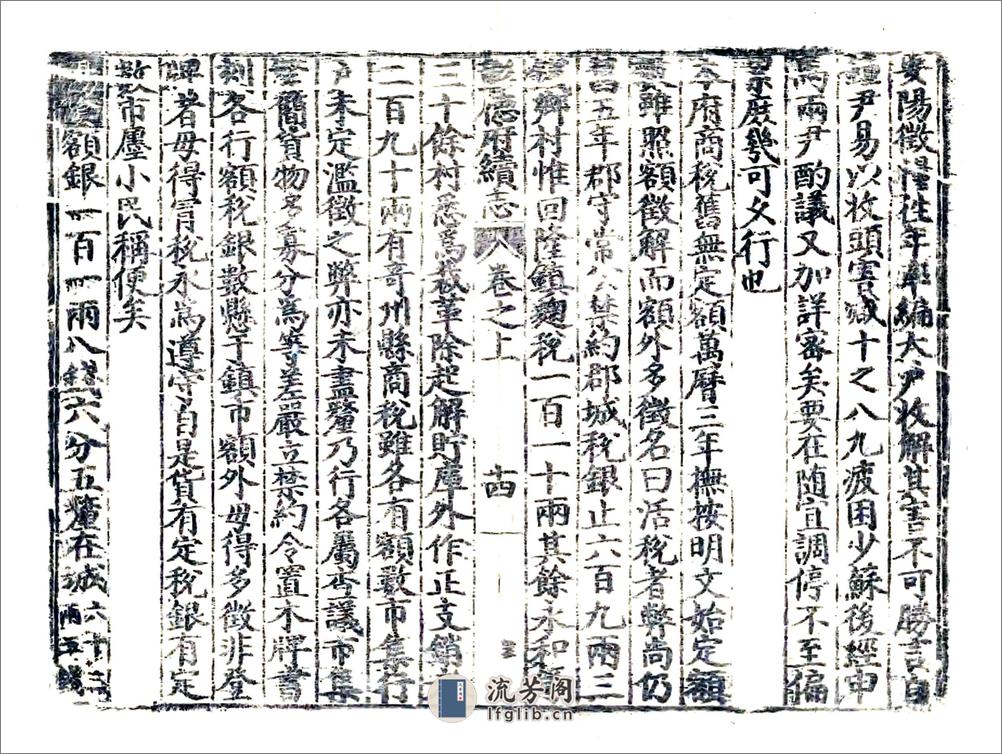 安陽徵糧往年率編大戶收解其害不可勝言自
尹易以收頭害減十之八九疲困少蘇後經申
馬兩尹酌議又加詳審矣要在隨宜調停不至偏
累庶幾可久行也
今府商稅舊無定額萬曆三年撫按明文始定額
雖照額徵解而額外多徵名曰活稅者弊尚仍
舊五年郡守常公禁約郡城稅銀止六百九兩三
鄉村惟回隆鎮麯稅一百一十兩其餘永和
彰德府續志 卷之上 十四
三十餘村悉爲裁革除起解貯庫外作正支銷
二百九十兩有奇州縣商稅雖各有額數市集行
戶未定濫徵之弊亦未盡釐乃行各屬考議市集
簡貨物多寡分爲等差嚴立禁約令置木牌書
刻各行額稅銀數懸于鎮市額外毋得多徵非登
牌者毋得冒稅永爲遵守自是貨有定稅銀有定
數市廛小民稱便矣
額銀一百一兩八錢六分五釐在城六十三兩五錢
流芳阁
lfglib.cn